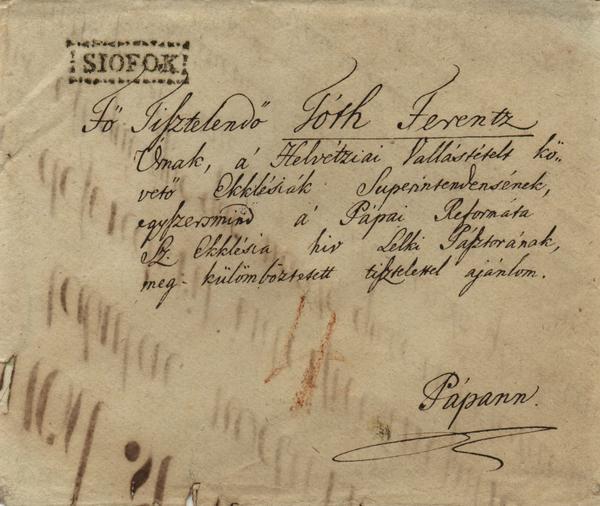 SIOFOK
Fö Tisztelendő Tóth Ferentz
Úrnak, á Helvétziai Vallástételt kö-
vető Ekklésiák Superintendensének,
egyszersmind á Pápai Reformáta
Sz. Ekklésia hiv Lelki Pásztorának,
meg-külömböztetett tisztelettel ajánlom.
Pápann.